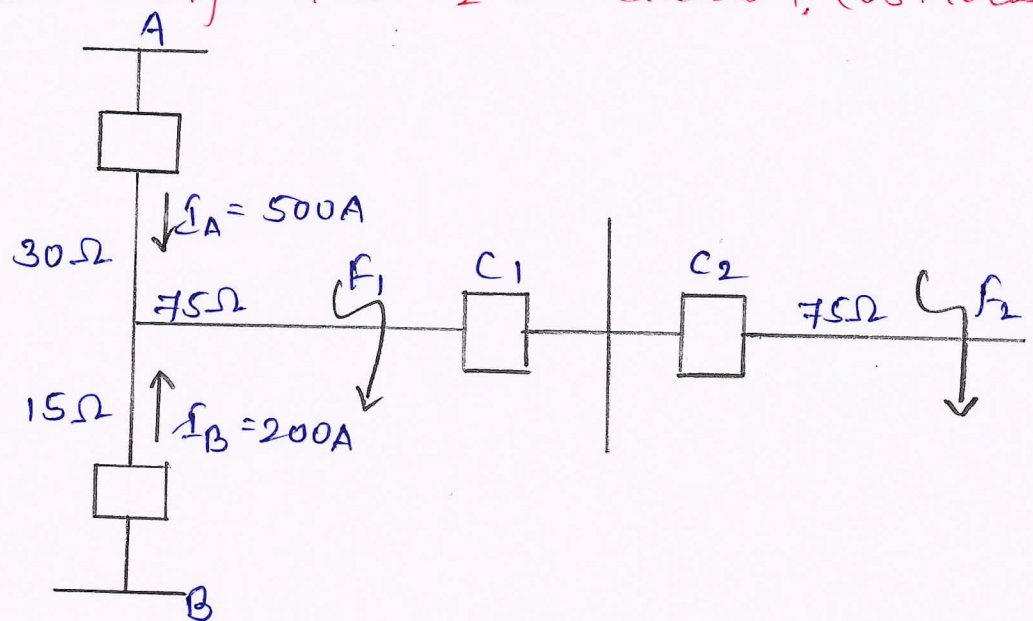 A
I_A = 500A
30Ω
F₁
C1
C2
75Ω
75Ω
F₂
15Ω
I_B = 200A
B